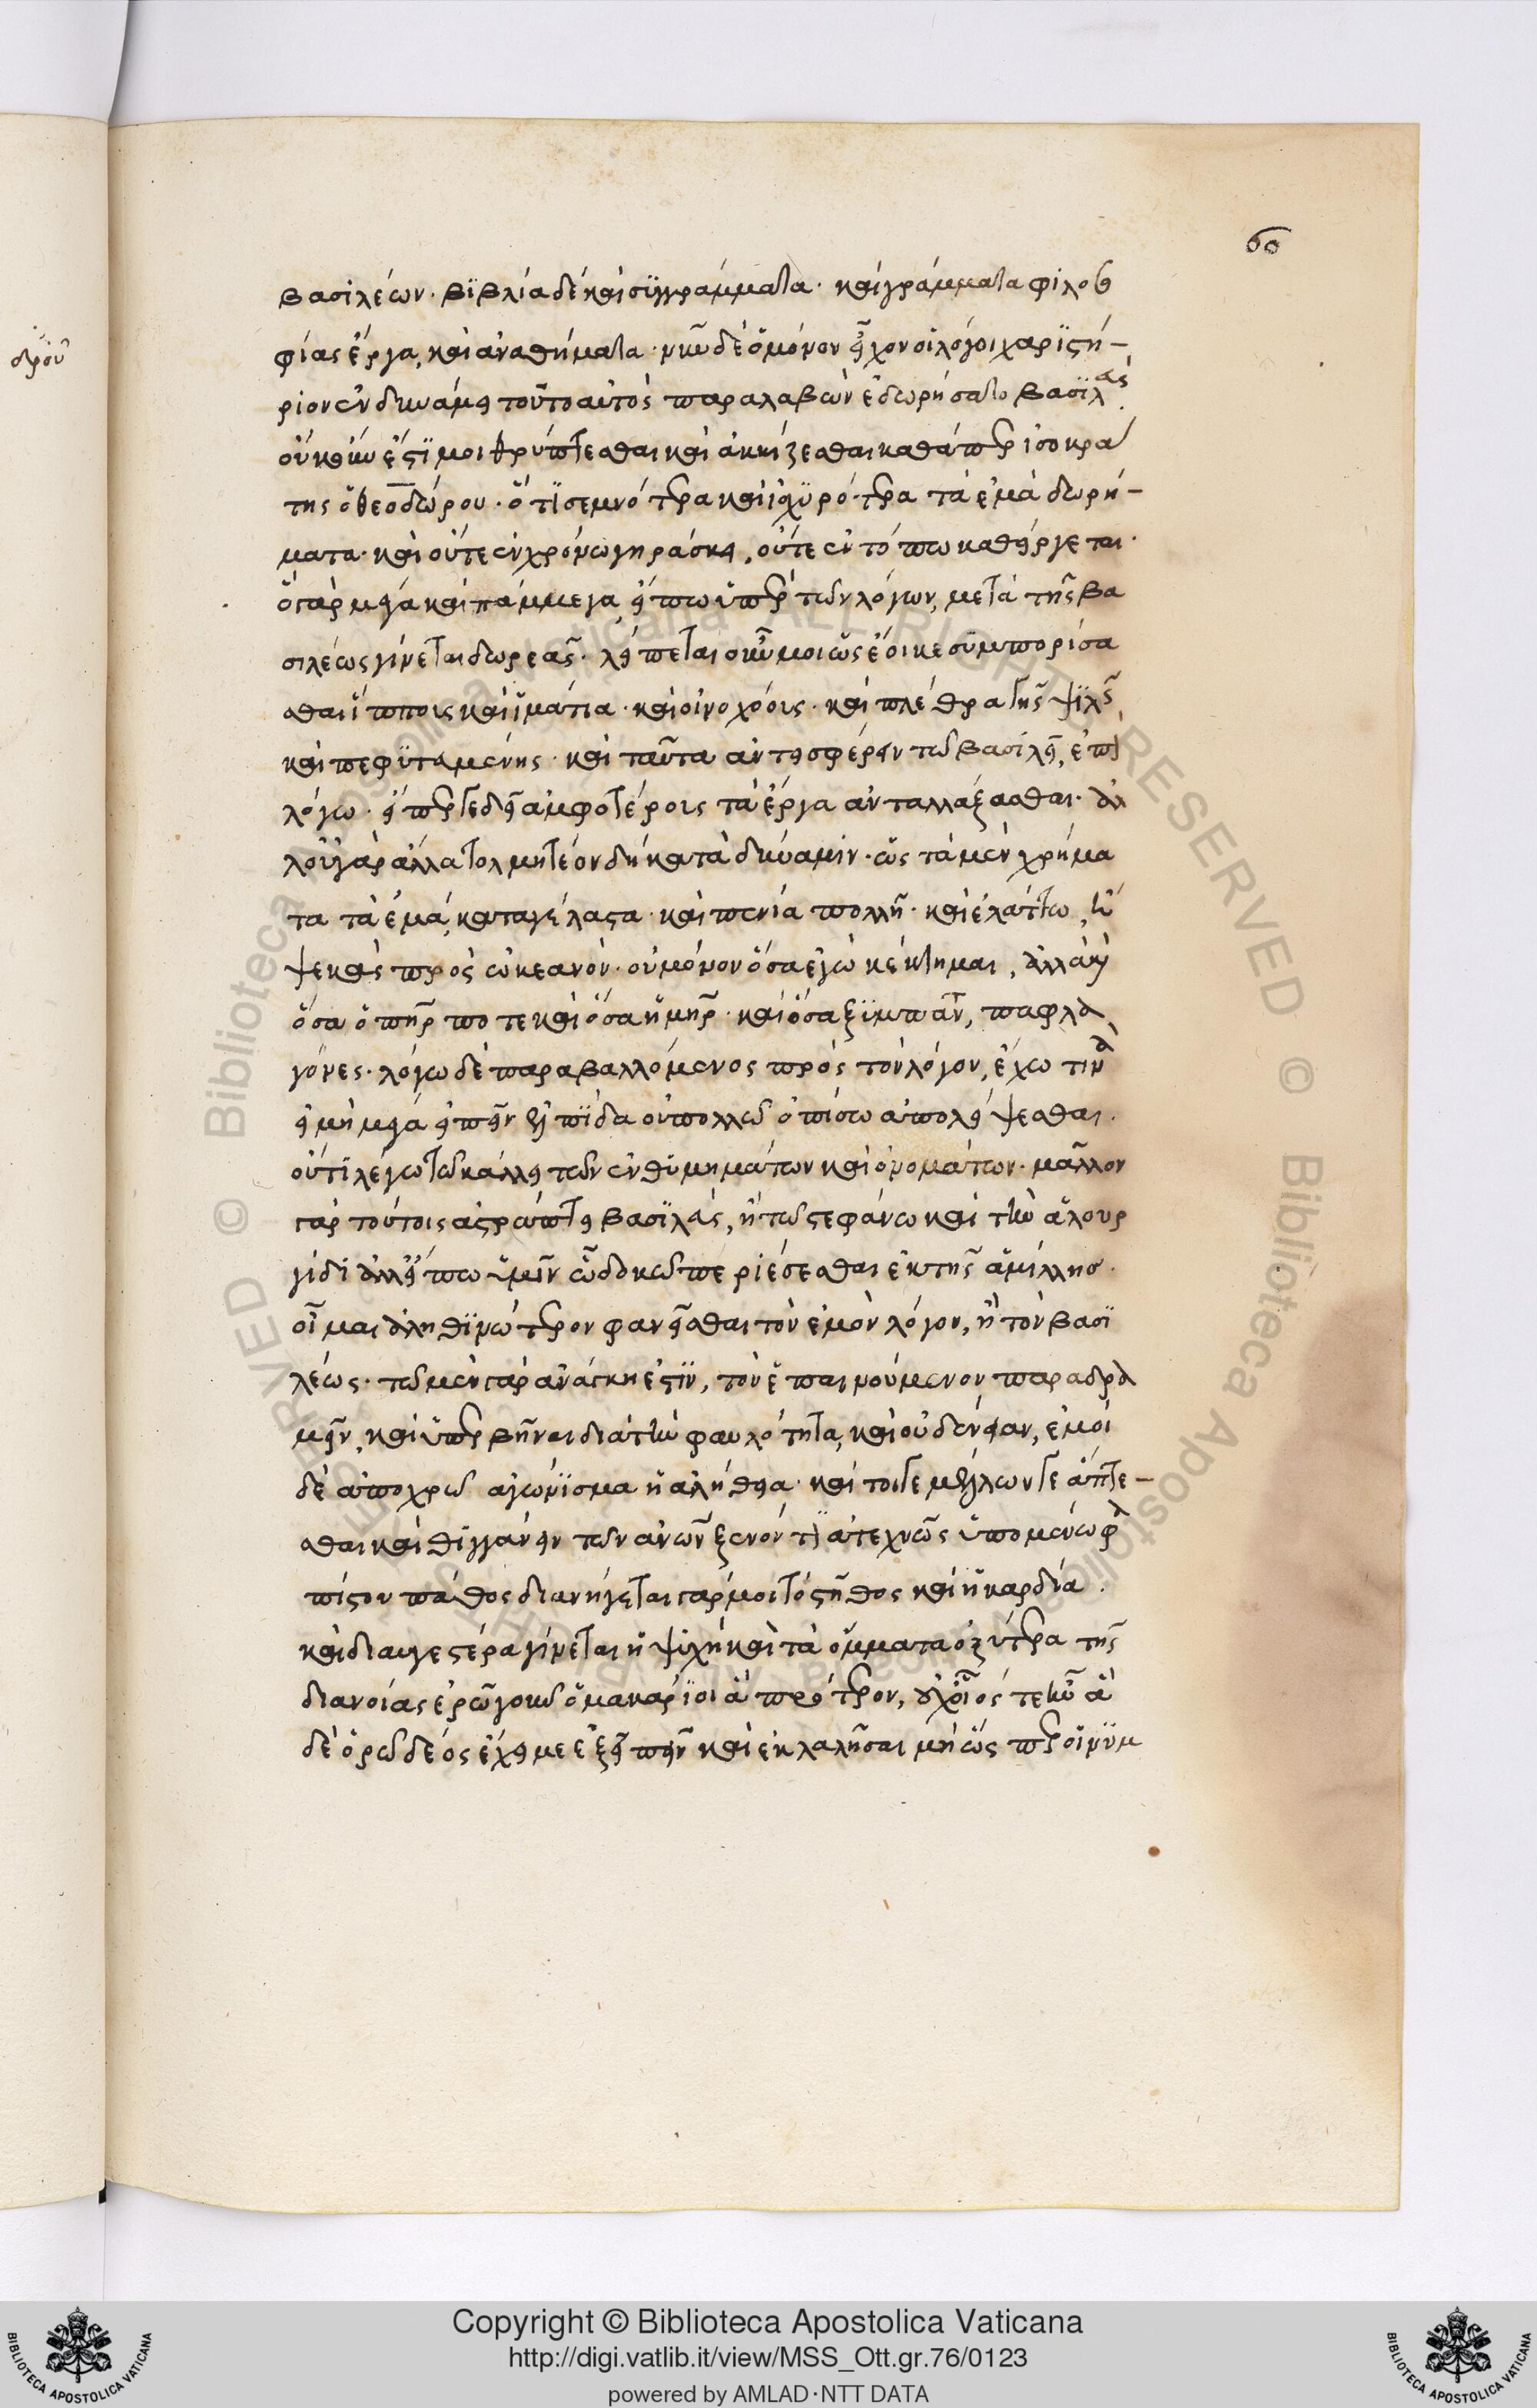 60
βασιλέων· βϊβλία δὲ καὶ συγγράμματα· καὶ γράμματα φιλοσο
φίας ἔργα, καὶ ἀναθήματα· νῦν δὲ ὃ μόνον εἶχον οἱ λόγοι χαρϊστή-
ριον ἐν δυνάμει τοῦτο αὐτὸς παραλαβὼν ἐδωρήσατο βασιλεὺς
οὐκοῦν ἔστϊ μοι θρύπτεσθαι καὶ ἀκκίζεσθαι καθάπερ ἰσοκρά
της ὁ θεοδώρου· ὅτϊ σεμνότερα καὶ ἰσχϋρότερα τὰ ἐμὰ δωρή-
ματα· καὶ οὔτε ἐν χρόνω γηράσκει, οὔτε ἐν τόπω καθείργεται·
ὃ γὰρ μέγα καὶ πάμμεγα εἴπω ὑπὲρ τῶν λόγων, μετὰ τῆς βα
σιλέως γίνεται δωρεᾶς· λείπεται οὖν μοι ὡς ἔοικε συμπορίσα
σθαι ἵπποις καὶ ἱμάτια· καὶ οἰνοχόοις· καὶ πλέθρα γῆς ψιλῆς
καὶ πεφϋτευμένης· καὶ ταῦτα ἀντεισφέρειν τῶ βασιλεῖ, ἐπὶ
λόγω· εἴπερ γε δεῖ ἀμφοτέροις τὰ ἔργα ἀνταλλάξασθαι· ἀλ
λ' οὐ γὰρ ἀλλὰ τολμητέον δὴ κατὰ δύναμιν· ὡς τὰ μὲν χρήμα
τα τὰ ἐμὰ, καταγέλαστα· καὶ πενία πολλὴ· καὶ ἐλάττω, ἢ
ψεκὰς πρὸς ὠκεανόν· οὐ μόνον ὅσα ἐγὼ κέκτημαι, ἀλλὰ καὶ
ὅσα ὁ πηρ ποτε καὶ ὅσα ἡ μηρ· καὶ ὅσα ξύμπαντες, παφλα
γόνες· λόγω δὲ παραβαλλόμενος πρὸς τὸν λόγον, ἔχω τινὰ
εἰ μὴ μέγα εἰπεῖν ἐλπίδα οὐ πολλῶ ὀπίσω ἀπολείψεσθαι·
οὔτϊ λέγω τῶ κάλλει τῶν ἐνθϋμημάτων καὶ ὀνομάτων· μᾶλλον
γὰρ τούτοις ἀστράπτει βασιλεὺς, ἢ τῶ στεφάνω καὶ τῆ ἁλουρ
γίδϊ ἀλλ' εἴπω ὑμῖν ὧ δοκῶ περιέσεσθαι ἐκ τῆς ἁμίλλης·
οἶμαι ἀληθϊνώτερον φανεῖσθαι τὸν ἐμὸν λόγον, ἢ τὸν βασϊ
λέως· τῶ μὲν γὰρ ἀνάγκη ἐστϊν, τὸν ἐπαινούμενον παραδρα
μεῖν, καὶ ὑπερβῆναι διὰ τὴν φαυλότητα, καὶ οὐδενείαν, ἐμοὶ
δὲ ἀποχρῶ ἀγώνϊσμα ἡ ἀλήθεια· καί τοι γε μέλλων γε ἅπτε-
σθαι καὶ θϊγγάνειν τῶν ἀνων ξενόν τι ἀτεχνῶς ὑπομένω καὶ
πιστὸν πάθος διανήγεται γάρ μοι τὸ στῆθος καὶ ἡ καρδία·
καὶ διαυγεστέρα γίνεται ἡ ψϋχὴ καὶ τὰ ὄμματα ὀξύτερα τῆς
διανοίας ἐρῶ γοῦν ὦ μακάρϊοι ἃ πρότερον, οὐχ οἷός τε ἦν ἃ
δὲ ὁρῶ δέος ἔχει με ἐξειπεῖν καὶ ἐκλαλῆσαι μὴ ὡς προοϊμϋμ
Copyright © Biblioteca Apostolica Vaticana
http://digi.vatlib.it/view/MSS_Ott.gr.76/0123
powered by AMLAD·NTT DATA